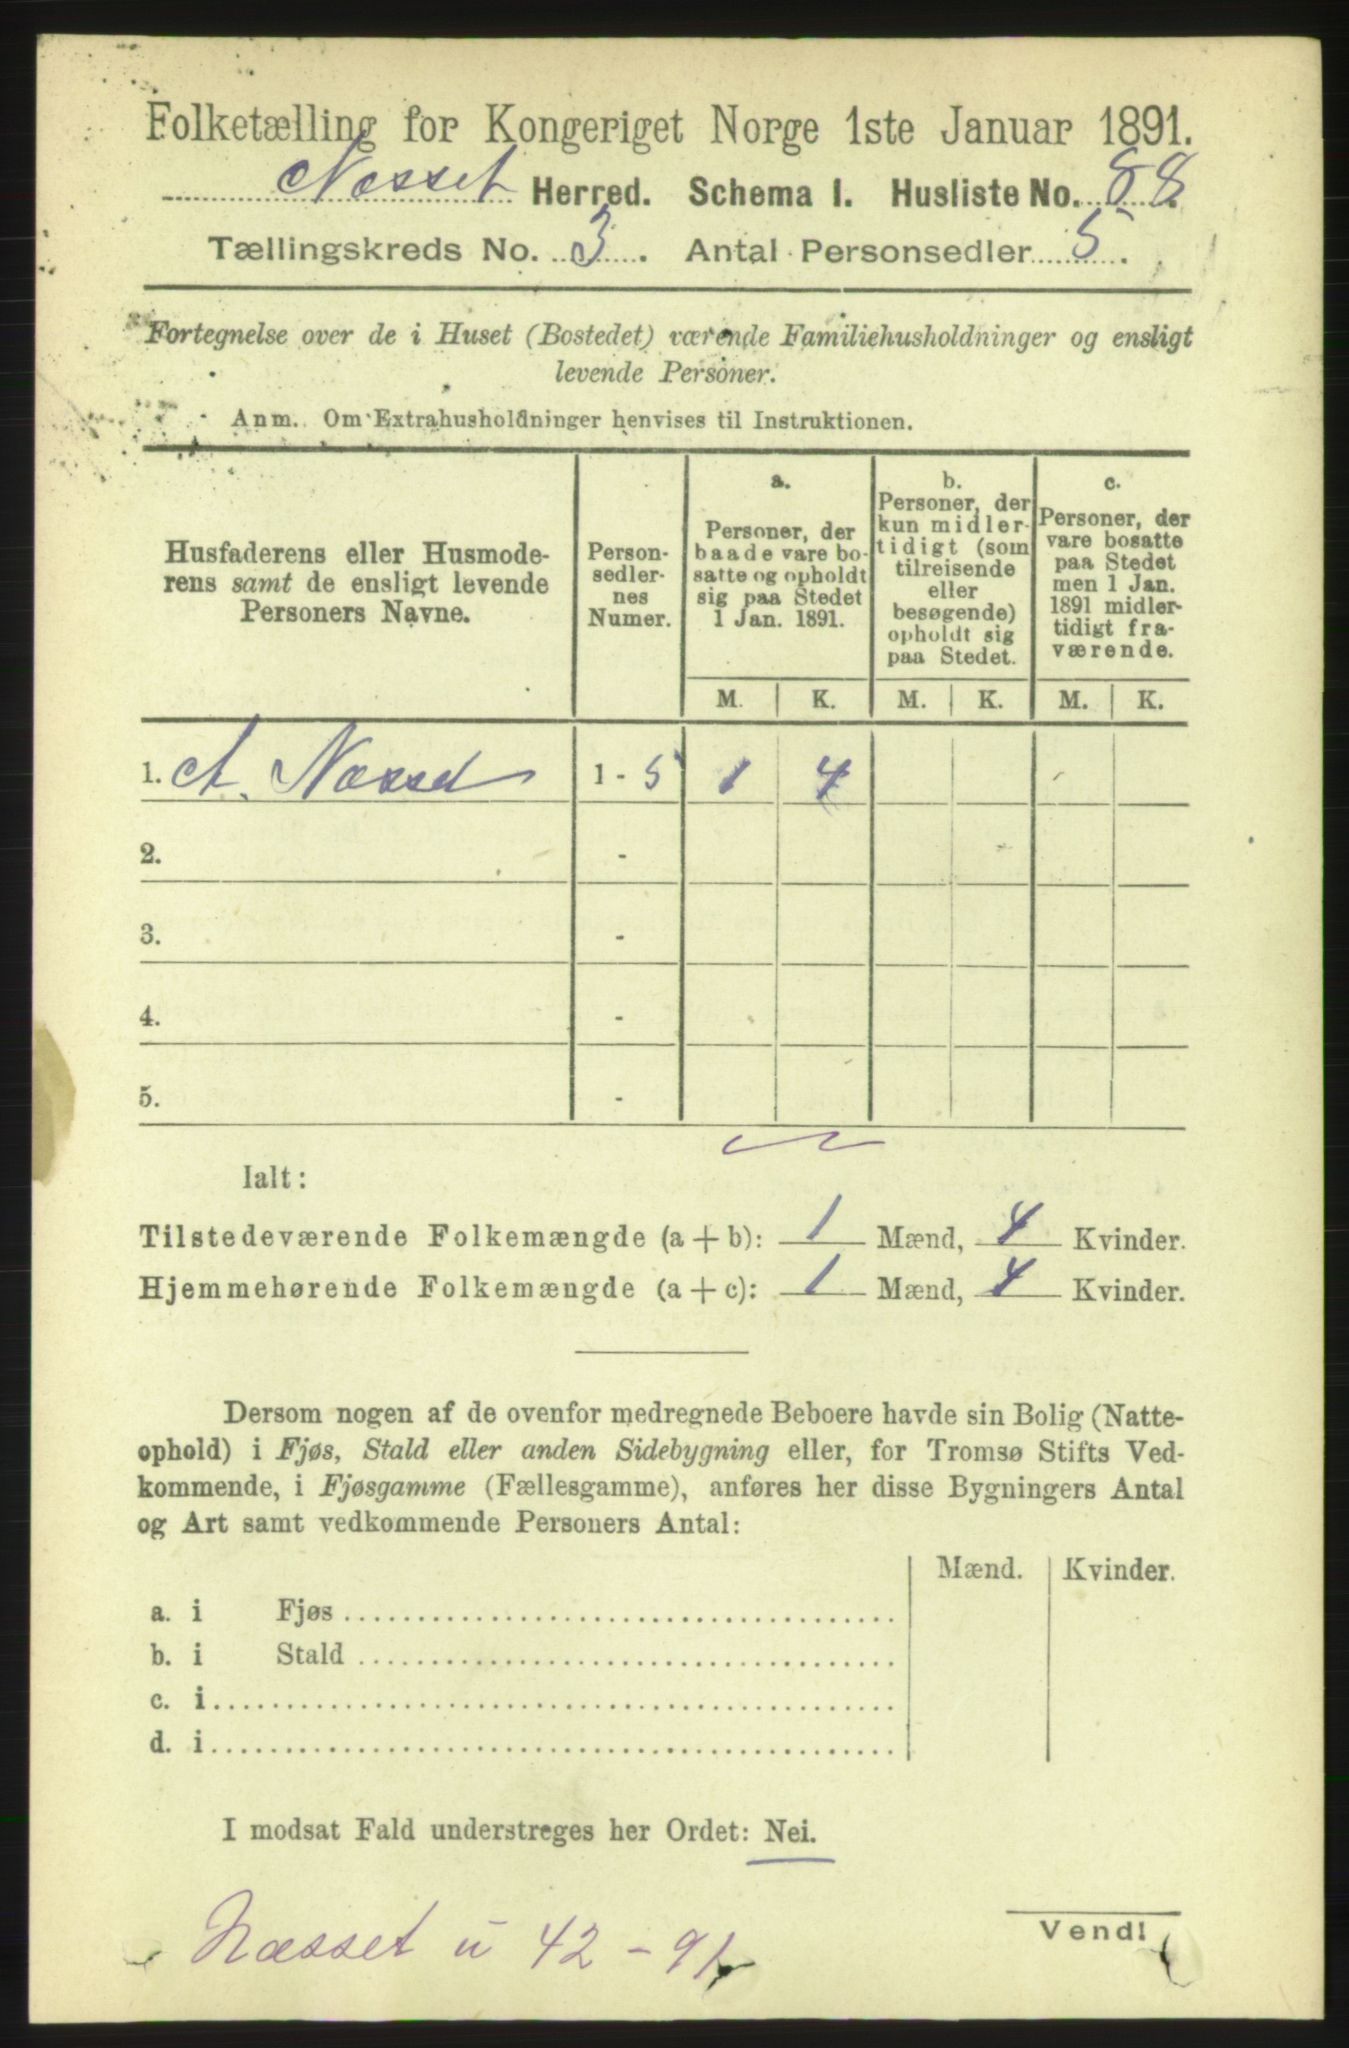 Folketælling for Kongeriget Norge 1ste Januar 1891.
Næsset Herred. Schema I. Husliste No. 88.
Tællingskreds No. 3. Antal Personsedler 5.
Fortegnelse over de i Huset (Bostedet) værende Familiehusholdninger og ensligt
levende Personer.
Anm. Om Extrahusholdninger henvises til Instruktionen.
Husfaderens eller Husmode-
rens samt de ensligt levende
Personers Navne.
Person-
sedler-
nes
Numer.
a.
Personer, der
baade vare bo-
satte og opholdt
sig paa Stedet
1 Jan. 1891.
b.
Personer, der
kun midler-
tidigt (som
tilreisende
eller
besøgende)
opholdt sig
paa Stedet.
c.
Personer, der
vare bosatte
paa Stedet
men 1 Jan.
1891 midler-
tidigt fra-
værende.
M. K. M. K. M. K.
1. A. Næsset 1 - 5 1 4
2. -
3. -
4. -
5. -
Ialt:
Tilstedeværende Folkemængde (a + b): 1 Mænd, 4 Kvinder.
Hjemmehørende Folkemængde (a + c): 1 Mænd, 4 Kvinder.
Dersom nogen af de ovenfor medregnede Beboere havde sin Bolig (Natte-
ophold) i Fjøs, Stald eller anden Sidebygning eller, for Tromsø Stifts Ved-
kommende, i Fjøsgamme (Fællesgamme), anføres her disse Bygningers Antal
og Art samt vedkommende Personers Antal:
Mænd. Kvinder.
a. i Fjøs
b. i Stald
c. i
d. i
I modsat Fald understreges her Ordet: Nei.
Vend!
Næsset u 42 - 91